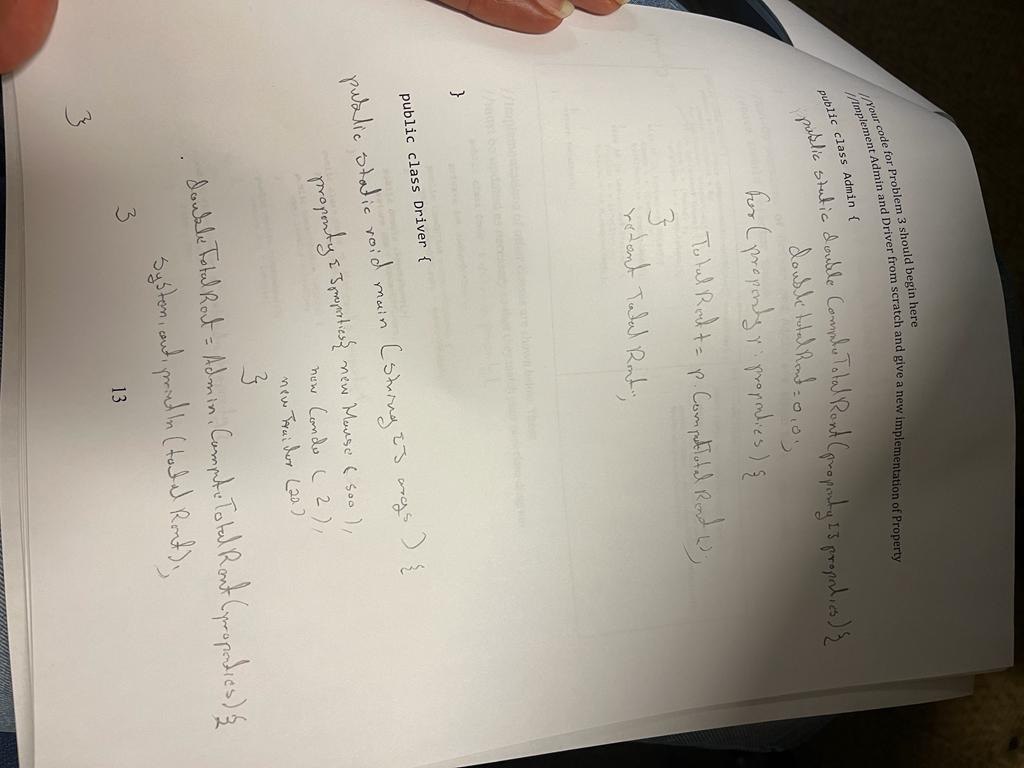 //Your code for Problem 3 should begin here
//Implement Admin and Driver from scratch and give a new implementation of Property
public class Admin {
public static double ComputeTotalRent(property[] properties) {
double totalRent = 0.0;
for( property p : properties) {
TotalRent = p. ComputeTotalRent();
}
return TotalRent;
}
public class Driver {
public static void main (String [] args ) {
property [] properties{ new House (500),
new Condo ( 2 ),
new Trailer (200)
}
double TotalRent = Admin. ComputeTotalRent(properties) {
System. out println (total Rent);
}
}
13